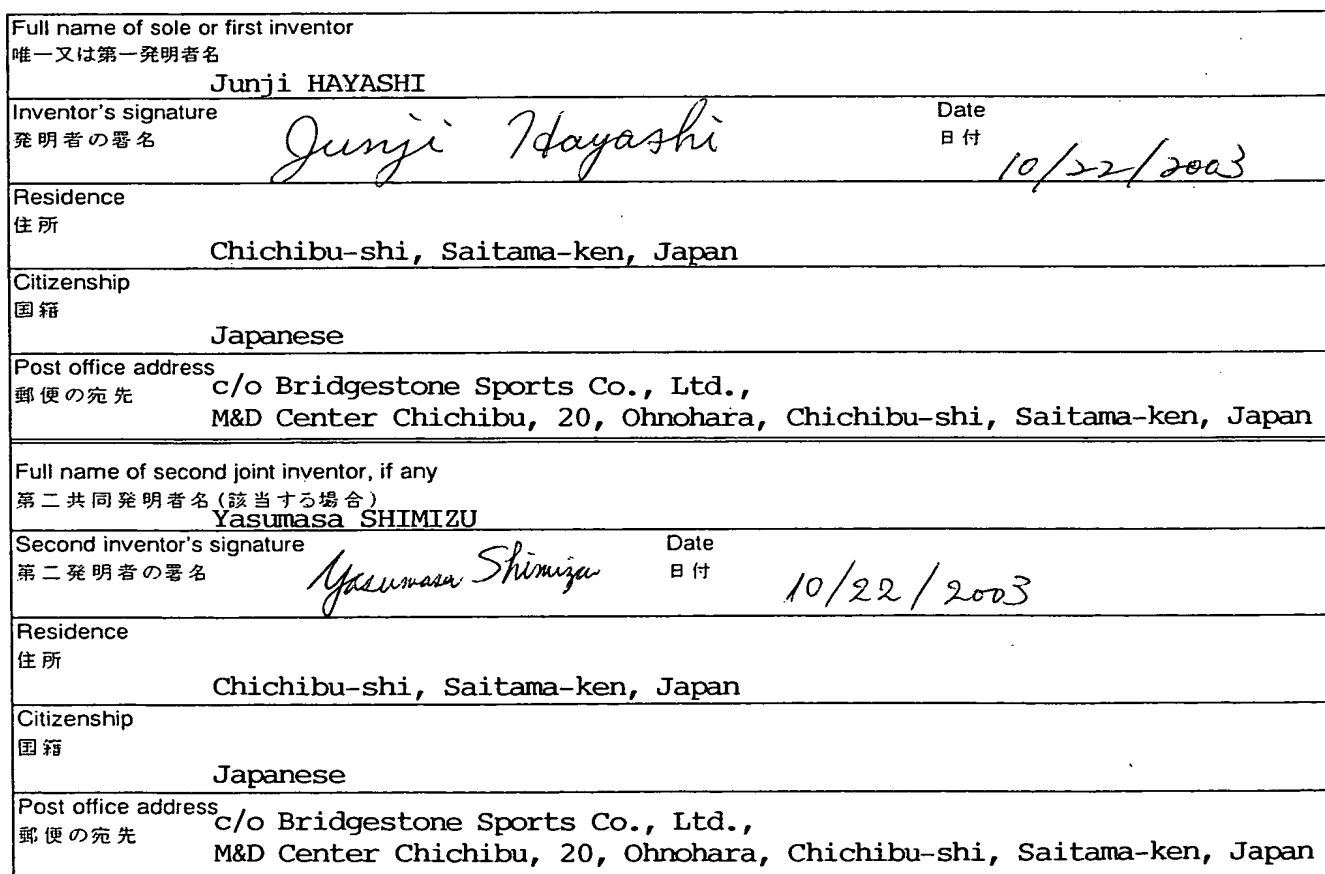 Full name of sole or first inventor
唯一又は第一発明者名
Junji HAYASHI
Inventor's signature
発明者の署名
Junji Hayashi
Date
日付
10/22/2003
Residence
住所
Chichibu-shi, Saitama-ken, Japan
Citizenship
国籍
Japanese
Post office address
郵便の宛先
c/o Bridgestone Sports Co., Ltd.,
M&D Center Chichibu, 20, Ohnohara, Chichibu-shi, Saitama-ken, Japan
Full name of second joint inventor, if any
第二共同発明者名(該当する場合)
Yasumasa SHIMIZU
Second inventor's signature
第二発明者の署名
Yasumasa Shimizu
Date
日付
10/22/2003
Residence
住所
Chichibu-shi, Saitama-ken, Japan
Citizenship
国籍
Japanese
Post office address
郵便の宛先
c/o Bridgestone Sports Co., Ltd.,
M&D Center Chichibu, 20, Ohnohara, Chichibu-shi, Saitama-ken, Japan